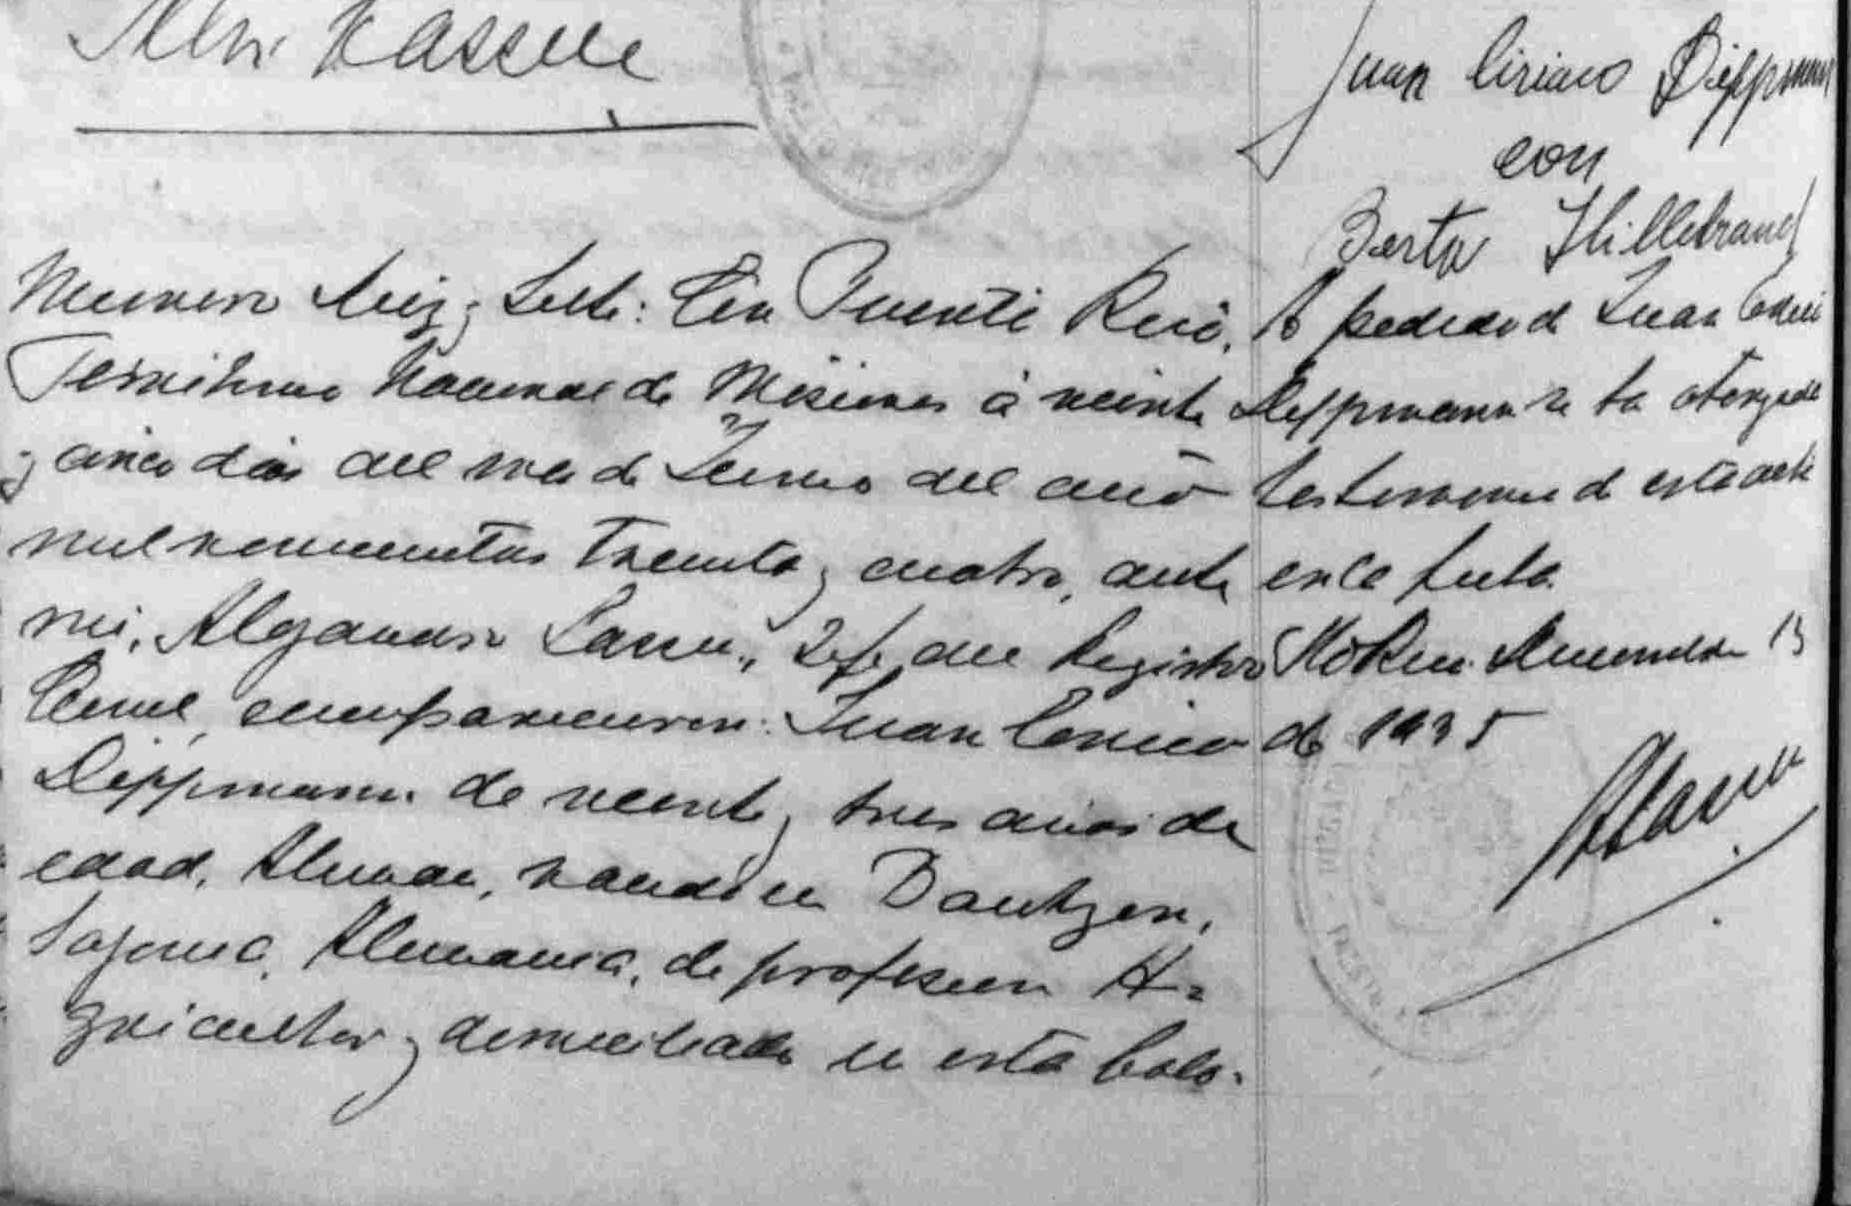 Juan Ciriaco Dippmann
con
Berta Hillebrand
Numero diez y siete: En Puerto Rico,
Territorio Nacional de Misiones á veinte
y cinco dias del mes de Junio del año
mil novecientos treinta y cuatro, ante
mi, Jefe del Registro
Civil, comparecieron: Juan Ciriaco
Dippmann de veinte y tres años de
edad, Aleman, nacido en Bautzen,
Sajonia, Alemania, de profesion A=
gricultor y domiciliado en esta Colo-
A pedido de Juan
Dippmann se ha otorgado
testimonio de esta acta
en la fecha
13
de 1935